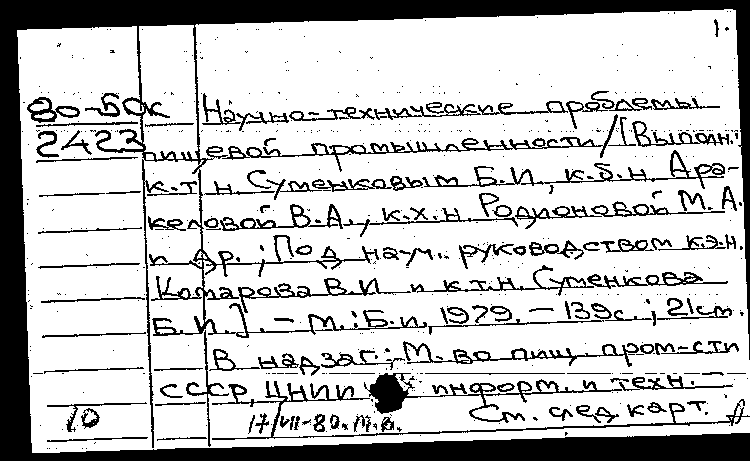 1.
80-50к Научно-технические проблемы
2423 пищевой промышленности/[Выполн.:
к.т.н. Суменковым Б.И., к.б.н. Ара-
келовой В.А., к.х.н. Родионовой М.А.
и др.; Под науч. руководством к.э.н.
Комарова В.И и к.т.н. Суменкова
Б.И.]. – М.: Б.и, 1979. – 139с.; 21см.
В надзаг.: М-во пищ. пром-сти
СССР, ЦНИИ информ. и техн. –
10 17/VII-80. м.в. См. след карт.